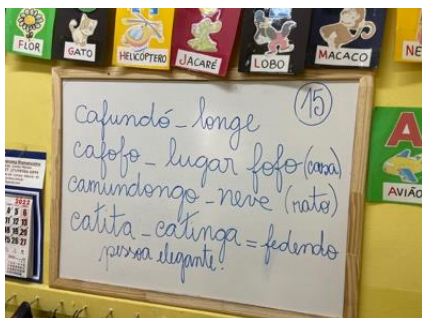 FLOR
GATO
HELICÓPTERO
JACARÉ
LOBO
MACACO
NE
15
cafundó - longe
cafofo - lugar fofo (casa)
camundongo - neve (rato)
catita - catinga = fedendo
pessoa elegante.
A
AVIÃO
2022